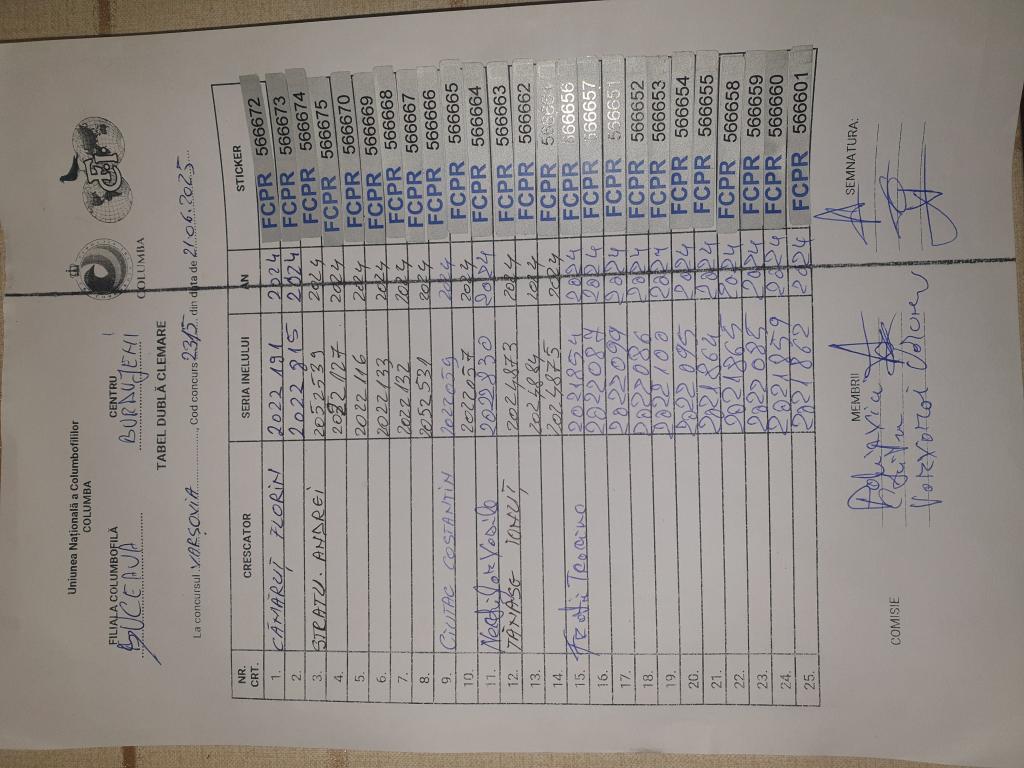 Uniunea Națională a Columbofililor
COLUMBA
COLUMBA
FILIALA COLUMBOFILĂ CENTRU
SUCEAVA BURDUJENI
TABEL DUBLĂ CLEMARE
La concursul VARȘOVIA, Cod concurs 2315 din data de 21.06.2025
NR. CRT. CRESCATOR SERIA INELULUI AN STICKER
1. CĂMĂRUȚ FLORIN 2022191 2024 FCPR 566672
2. 2022915 2024 FCPR 566673
3. STRATU ANDREI 2052539 2024 FCPR 566674
4. 2022127 2024 FCPR 566675
5. 2022116 2024 FCPR 566670
6. 2022133 2024 FCPR 566669
7. 2022132 2024 FCPR 566668
8. 2052531 2024 FCPR 566667
9. CIUTAC COSTANTIN 2022059 2024 FCPR 566666
10. 2022057 2024 FCPR 566665
11. 2022830 2024 FCPR 566664
12. TANASĂ IONUȚ 2024873 2024 FCPR 566663
13. 2024884 2024 FCPR 566662
14. 2024875 2024 FCPR
15. Frații Traciuc 2021854 2024 FCPR 566656
16. 2022087 2024 FCPR 566657
17. 2022099 2024 FCPR 566651
18. 2022086 2024 FCPR 566652
19. 2022100 2024 FCPR 566653
20. 2022095 2024 FCPR 566654
21. 2021864 2024 FCPR 566655
22. 2021865 2024 FCPR 566658
23. 2022085 2024 FCPR 566659
24. 2021859 2024 FCPR 566660
25. 2021862 2024 FCPR 566601
COMISIE MEMBRII SEMNATURA: